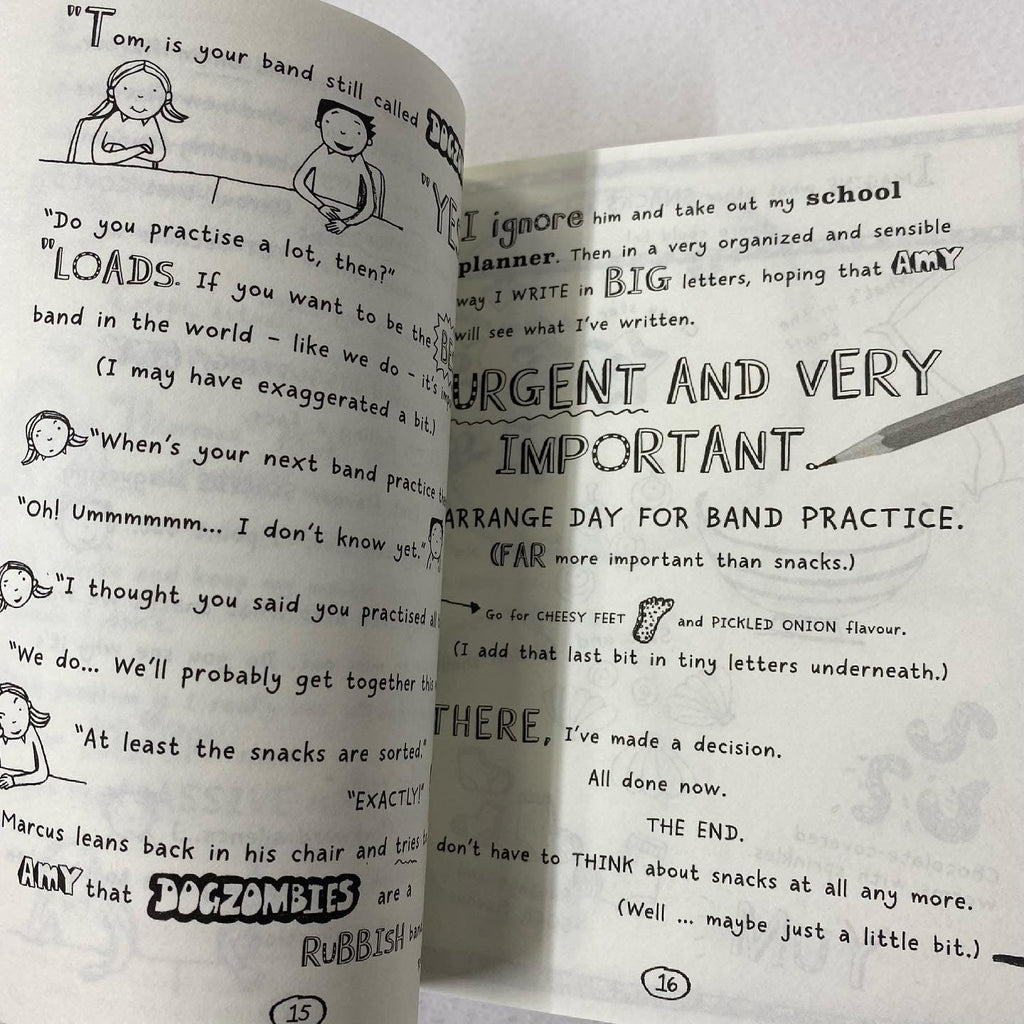 "Tom, is your band still called
"Do you practise a lot, then?"
"LOADS. If you want to be the
band in the world – like we do – it's
(I may have exaggerated a bit.)
"When's your next band practice
"Oh! Ummmmmm... I don't know yet."
"I thought you said you practised
"We do... We'll probably get together this
"At least the snacks are sorted."
"EXACTLY!"
Marcus leans back in his chair and tries
AMY that DOGZOMBIES are a
RUBBISH
15
I ignore him and take out my school
planner. Then in a very organized and sensible
way I WRITE in BIG letters, hoping that AMY
will see what I've written.
URGENT AND VERY
IMPORTANT.
ARRANGE DAY FOR BAND PRACTICE.
(FAR more important than snacks.)
Go for CHEESY FEET and PICKLED ONION flavour.
(I add that last bit in tiny letters underneath.)
THERE, I've made a decision.
All done now.
THE END.
don't have to THINK about snacks at all any more.
(Well ... maybe just a little bit.)
16